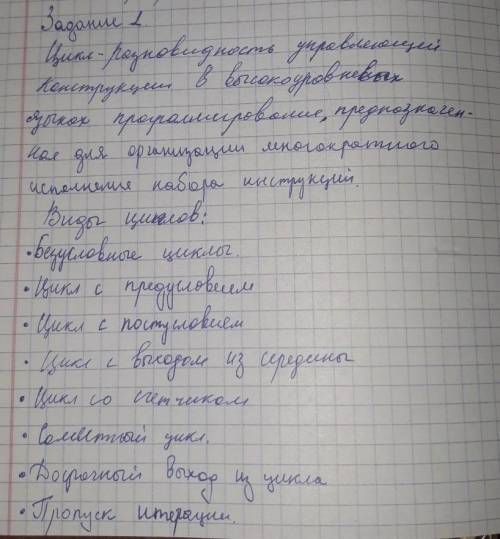 Задание 1
Цикл-разновидность управляющей
конструкции в высокоуровневых
языках программирование, предназначен-
ная для организации многократного
исполнения набора инструкций.
Виды циклов:
• Безусловные циклы.
• Цикл с предусловием
• Цикл с постусловием
• Цикл с выходом из середины
• Цикл со счетчиком
• Совместный цикл.
• Досрочный выход из цикла
• Пропуск итерации.